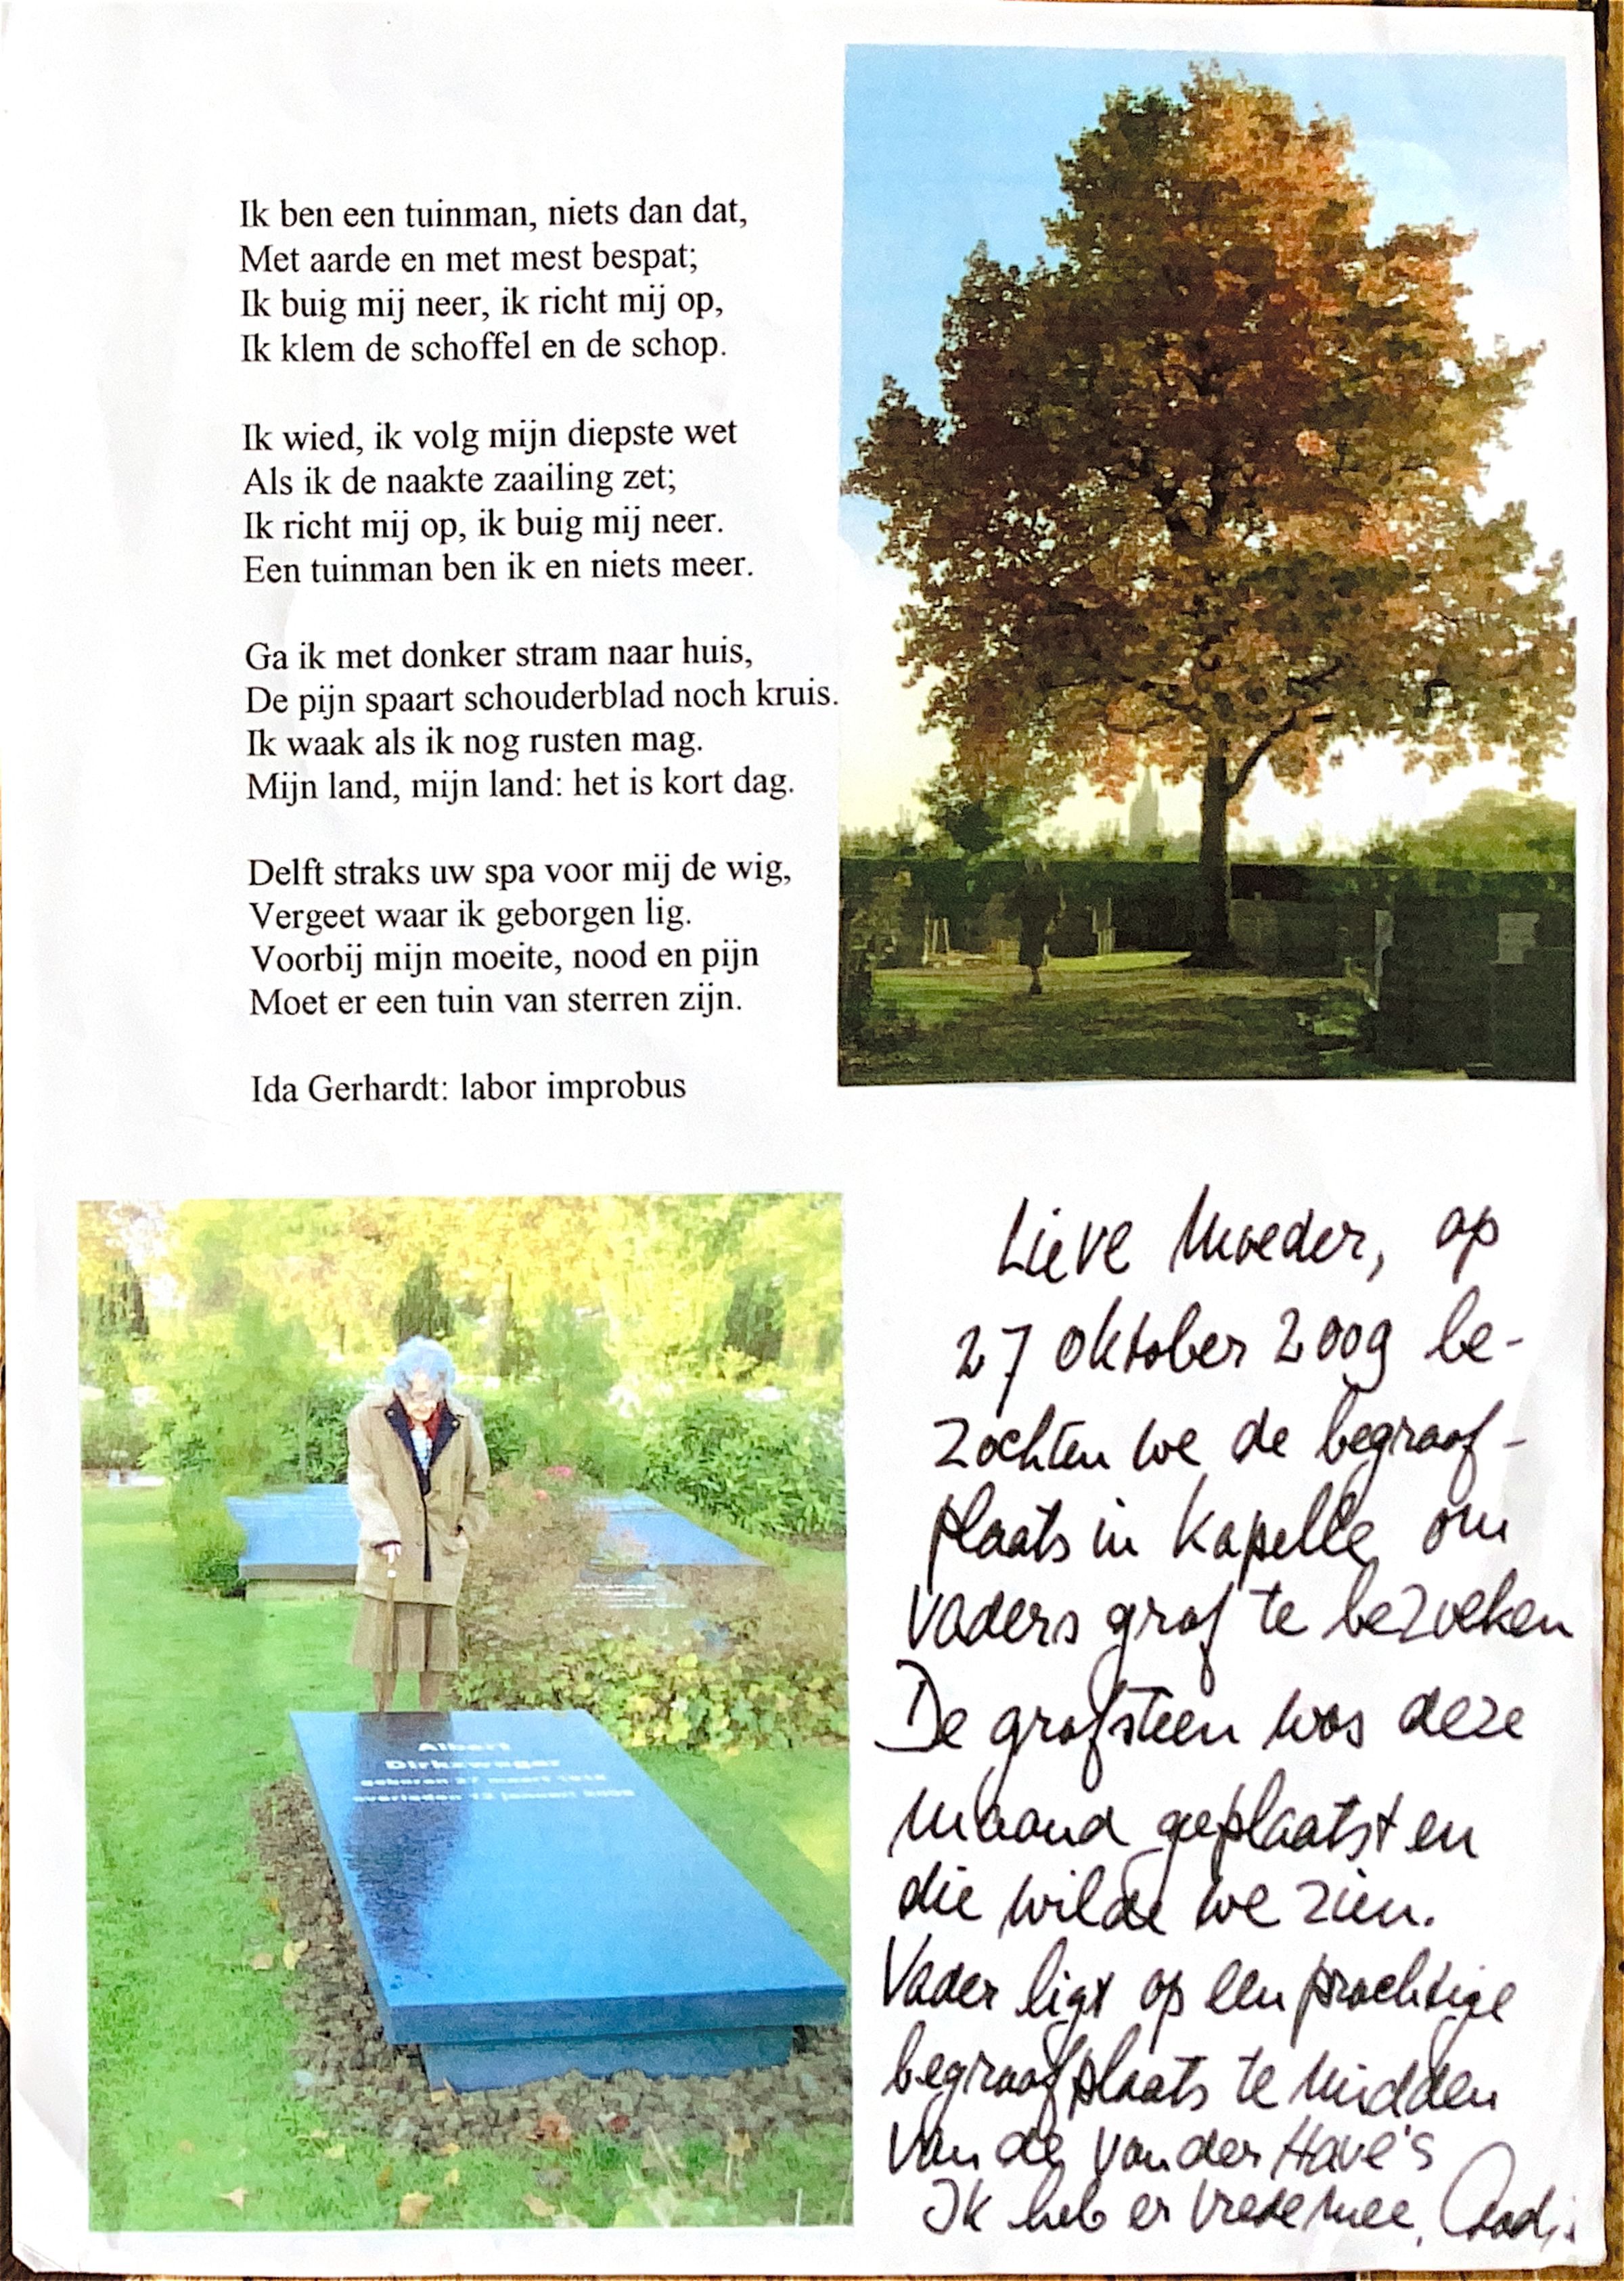 Ik ben een tuinman, niets dan dat,
Met aarde en met mest bespat;
Ik buig mij neer, ik richt mij op,
Ik klem de schoffel en de schop.
Ik wied, ik volg mijn diepste wet
Als ik de naakte zaailing zet;
Ik richt mij op, ik buig mij neer.
Een tuinman ben ik en niets meer.
Ga ik met donker stram naar huis,
De pijn spaart schouderblad noch kruis.
Ik waak als ik nog rusten mag.
Mijn land, mijn land: het is kort dag.
Delft straks uw spa voor mij de wig,
Vergeet waar ik geborgen lig.
Voorbij mijn moeite, nood en pijn
Moet er een tuin van sterren zijn.
Ida Gerhardt: labor improbus
Albert
Dirkzwager
geboren 27 maart
overleden 12 januari
Lieve Moeder, op
27 oktober 2009 be-
zochten we de begraaf-
plaats in Kapelle om
vaders graf te bezoeken
De grafsteen was deze
maand geplaatst en
die wilde we zien.
Vader ligt op een prachtige
begraafplaats te midden
van de van der Have's
Ik heb er vrede mee,